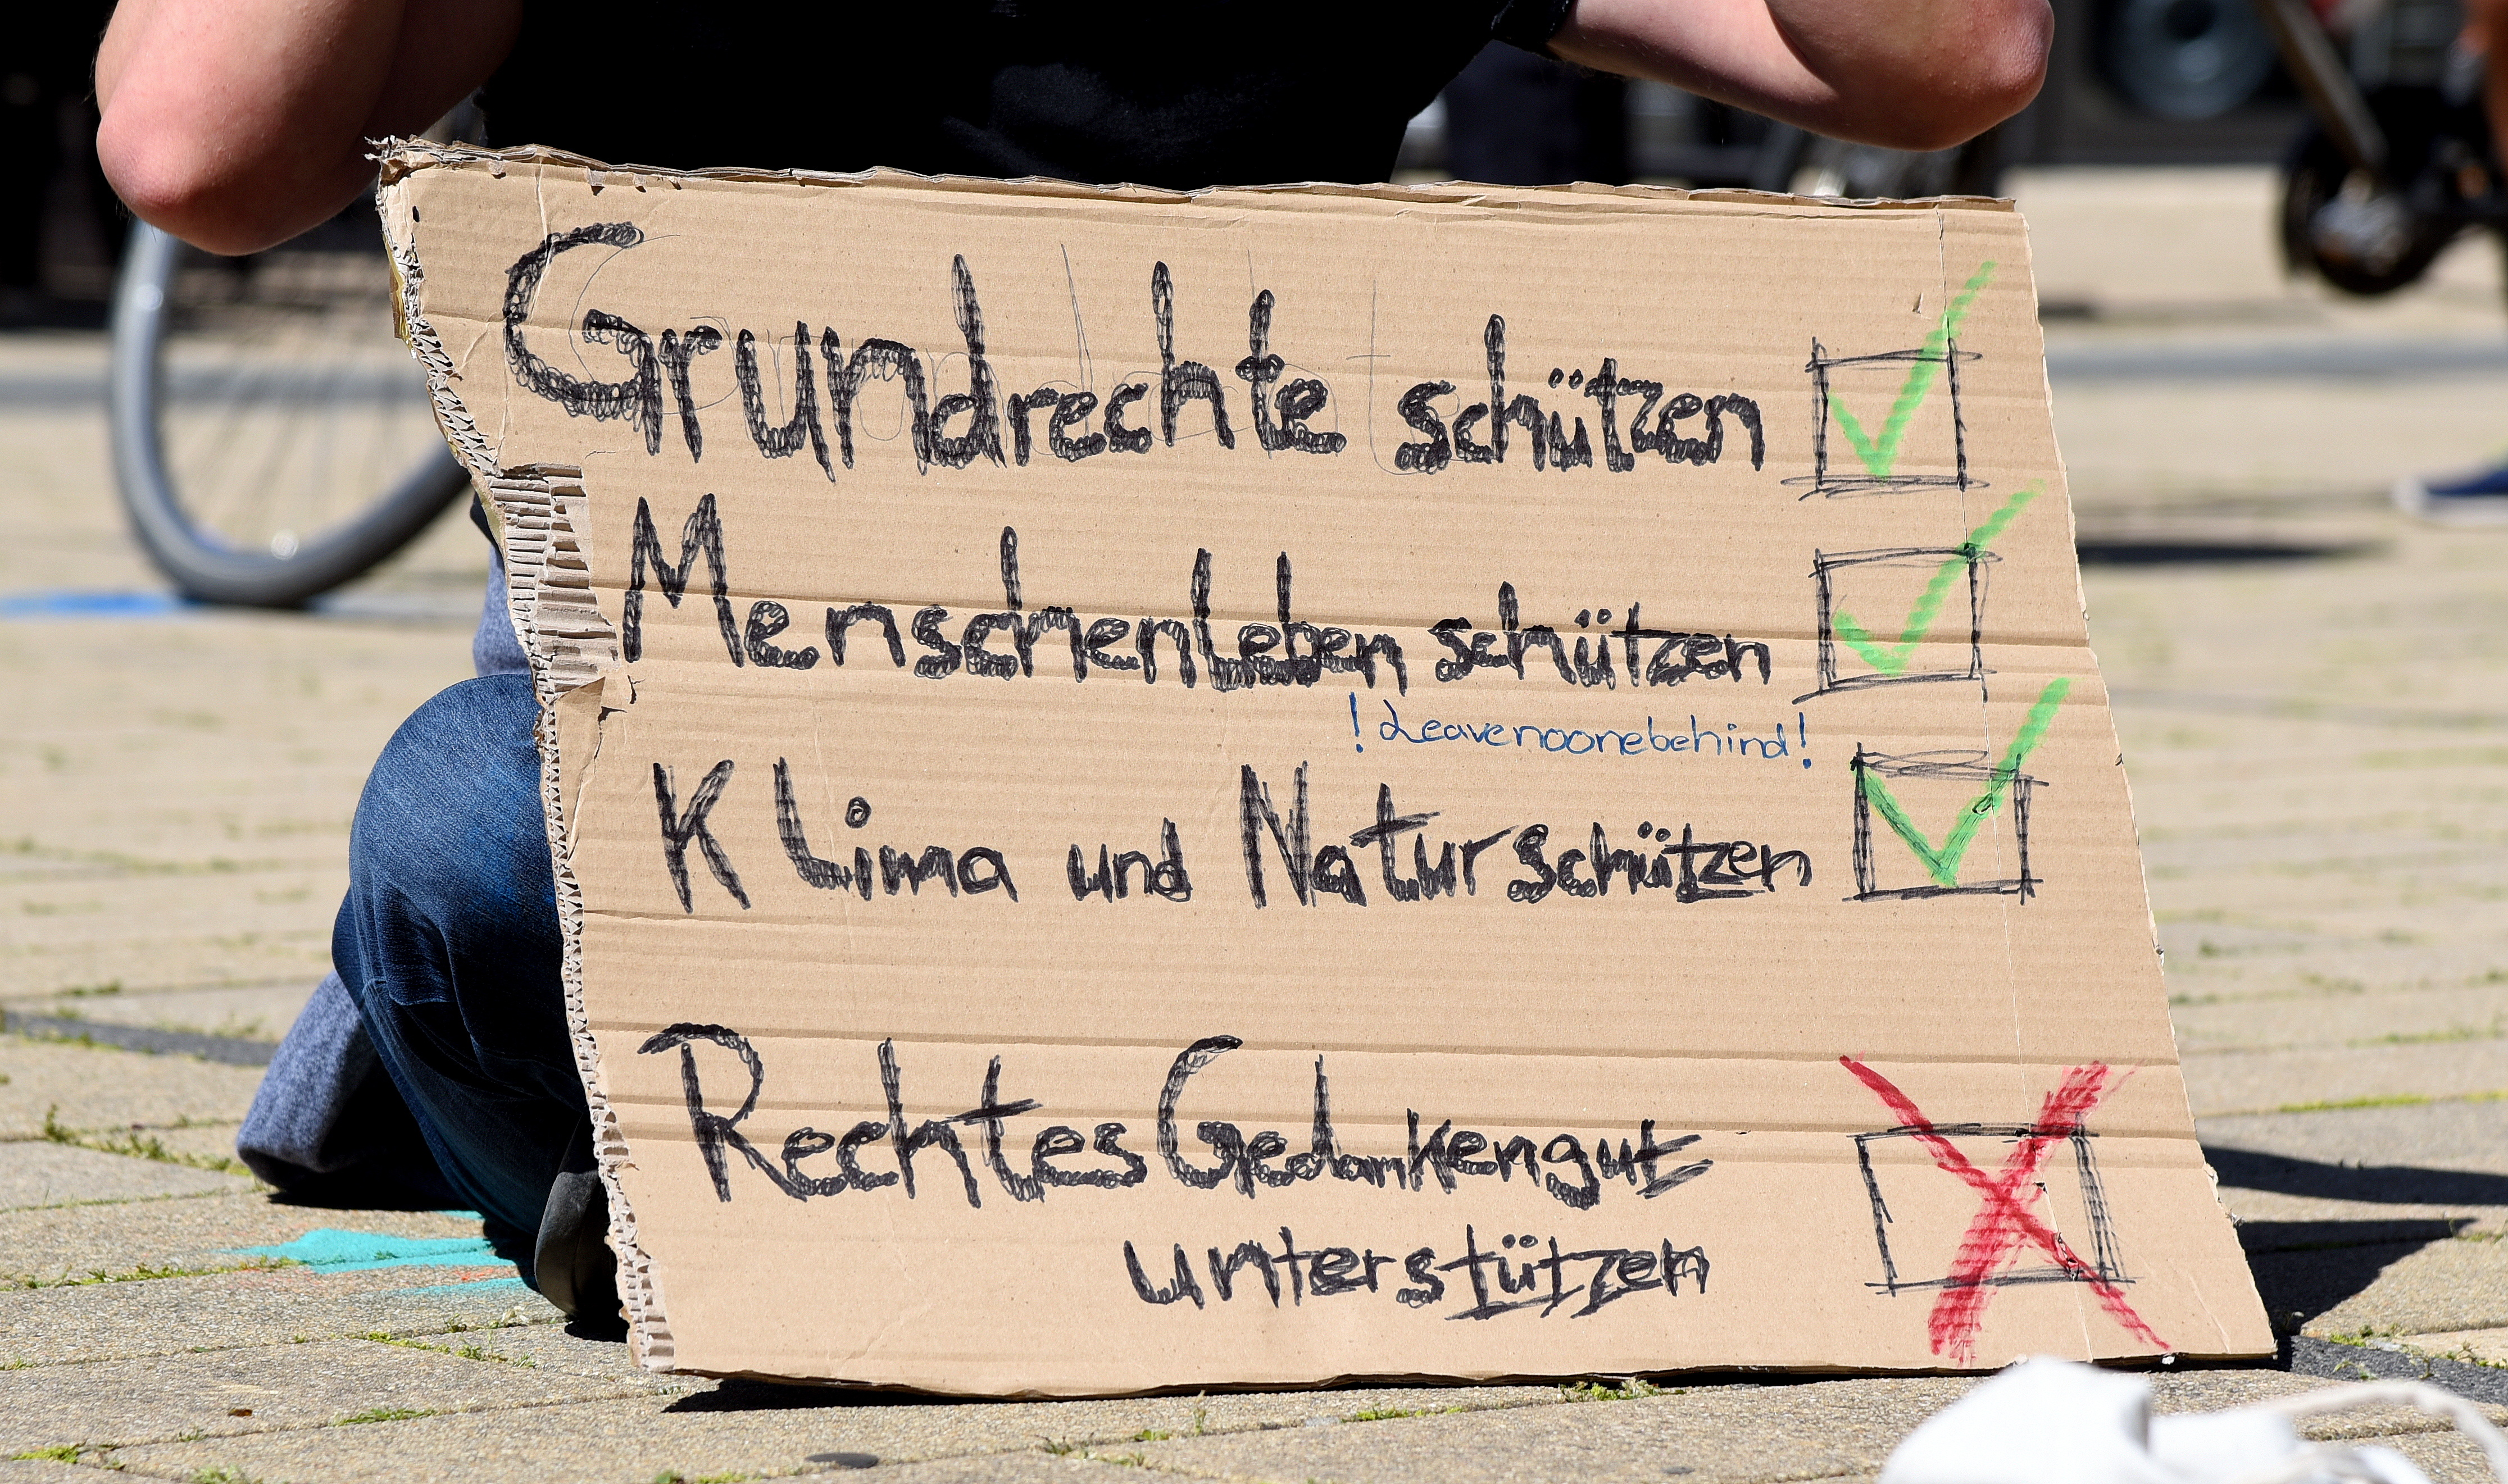 Grundrechte schützen
Menschenleben schützen
! Leavenoonebehind!
Klima und Natur schützen
Rechtes Gedankengut
unterstützen